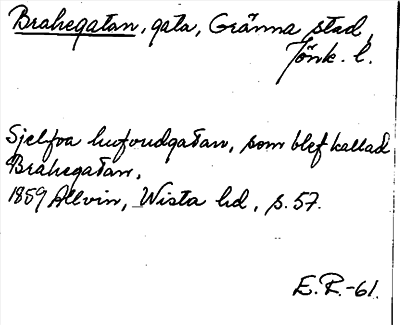 Brahegatan, gata, Gränna stad,
Jönk. l.
Sjelfva hufvudgatan, som blef kallad
Brahegatan.
1859 Allvin, Wista hd, s. 57.
E.R.-61.